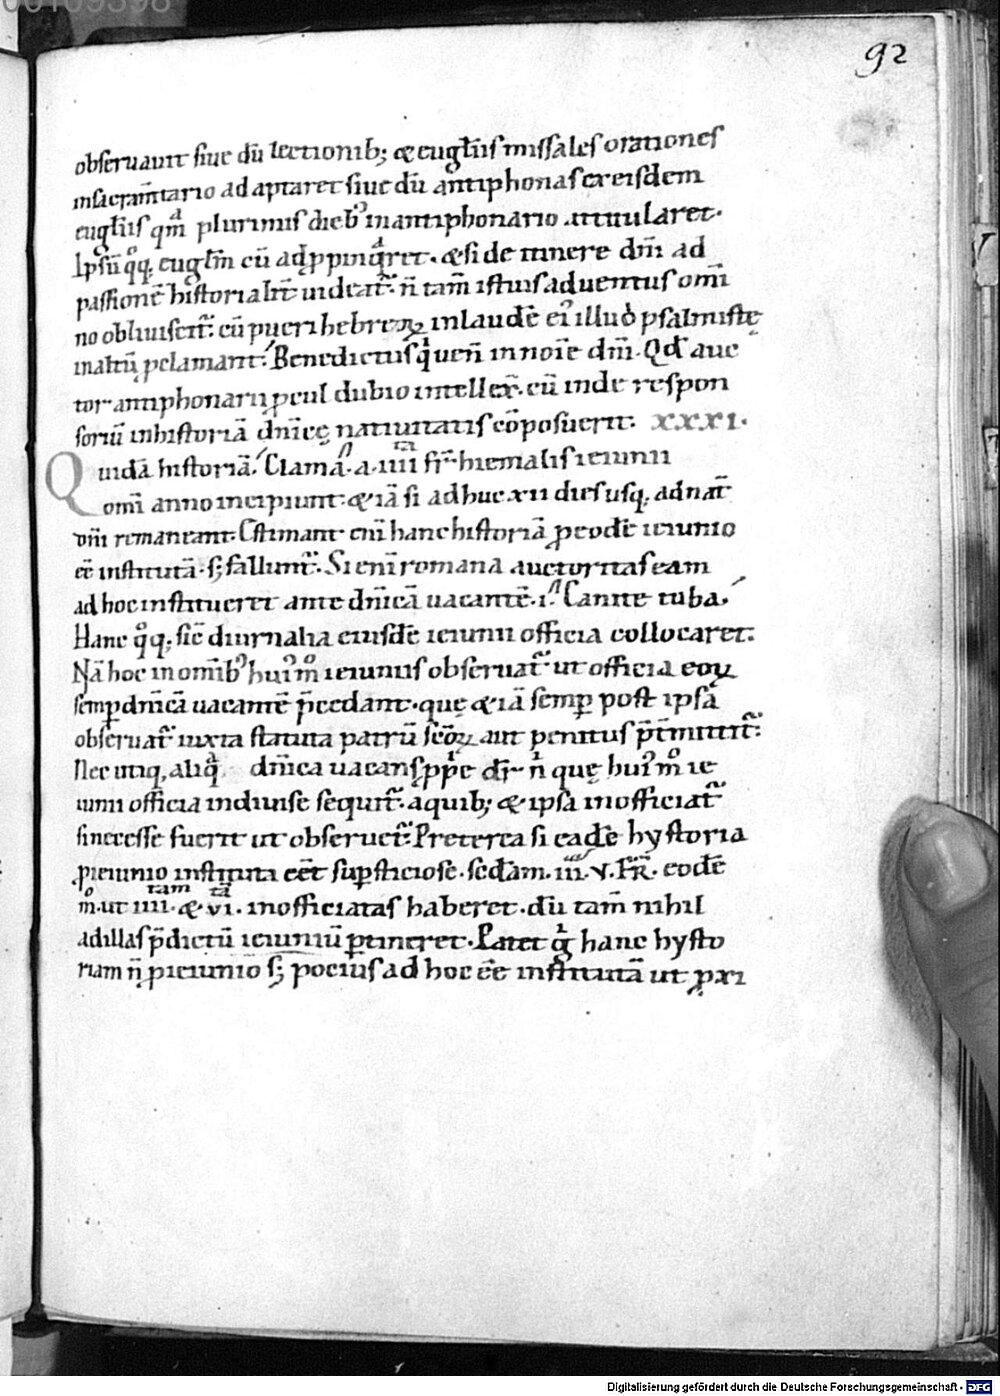 92
obseruauit siue dū lectionib; & eugl̄iis missales orationes
insacram̄tario adaptaret siue dū antiphonas exeisdem
eugl̄iis qm̄ plurimis dieb' inantiphonario intitularet.
Ipsū qq; eugl̄m cū adp̱pinq̄ret. & si de itinere dn̄i ad
passionē historialit̄ uideat̄. n̄ tam̄ istius aduentus omī
no obliuiscit̄. cū pueri hebreoꝝ inlaudē ei' illud psalmistę
inaltū p̱clamant. Benedictus q' ueń innoīe dn̄i. Qd̄ auc
tor antiphonarii p̱cul dubio intellex̄. cū inde respon
soriū inhistoriā dn̄icę natiuitatis cōposuerit. XXXI.
Quidā historiā. Clamā. a. iiii fr̄ hiemalis ieiunii
omī anno incipiunt. & iā si adhuc xii dies usq; ad nat̄
dn̄i remaneant. Estimant enī hanc historiā p̱ eodē ieiunio
eē institutā. s; fallunt̄. Si enī romana auctoritas eam
ad hoc institueret ante dn̄icā uacantē. i. Canite tuba.
Hanc qq; sic̄ diurnalia eiusdē ieiunii officia collocaret.
Nā hoc in omīb' hui' m° ieiuniis obseruat̄ ut officia eoꝝ
semp̱ dn̄icā uacantē p̄cedant. quę & iā semp̱ post ipsā
obseruat̄ iuxta statuta patrū scōꝝ aut penitus p̱t̄mittit̄.
Nec utiq, aliq̄ dn̄ica uacans p̱p̱e dr̄ n̄ quę hui' m° ie
iunii officia indiuise sequit̄. aquib; & ipsa inofficiat̄
sinecesse fuerit ut obseruet̄. Preterea si eadē hystoria
p̱ ieiunio instituta eēt sup̱sticiose. secd̄am. iii. v. FR̄. eodē
m° ut iiii tam. & vi tā. inofficiatas haberet. dū tam̄ nihil
adillas p̄dictū ieiuniū p̱tineret. Patet g' hanc hysto
riam n̄ p̱ ieiunio s; pocius ad hoc eē institutā ut p̱xi
Digitalisierung gefördert durch die Deutsche Forschungsgemeinschaft - DFG